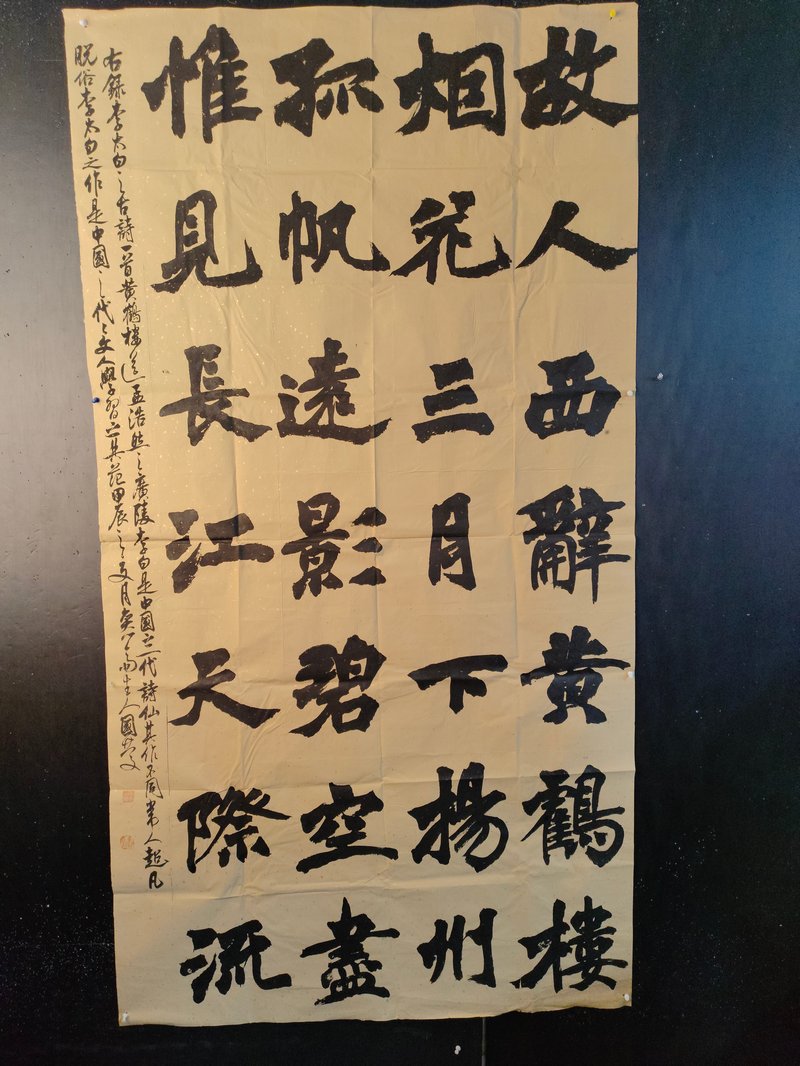 故人西辭黃鶴樓
烟花三月下揚州
孤帆遠影碧空盡
惟見長江天際流
右錄李太白之古詩一首黄鶴樓送孟浩然之廣陵李白是中國一代詩仙其作不同常人超凡
脱俗李太白之作是中國之代之文人學習之典范甲辰之夏月